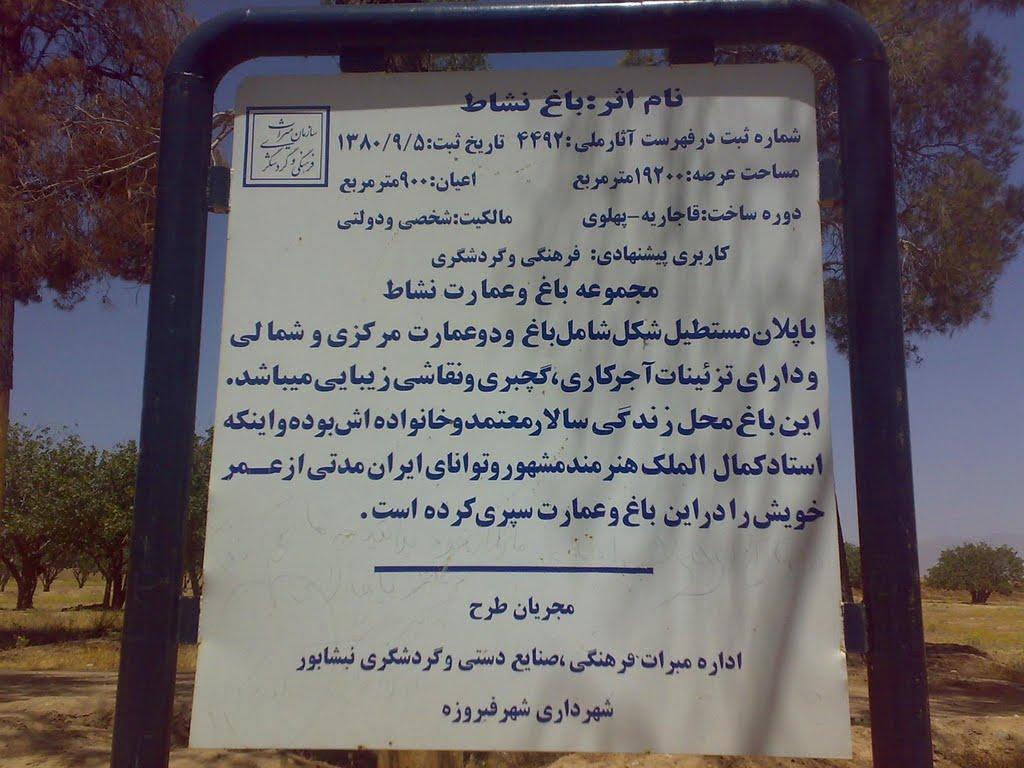 نام اثر:باغ نشاط
سازمان میراث
فرهنگی و گردشگری
شماره ثبت در فهرست آثار ملی:۴۴۹۲ تاریخ ثبت:۱۳۸۰/۹/۵
مساحت عرصه:۱۹۲۰۰متر مربع اعیان:۹۰۰متر مربع
دوره ساخت:قاجاریه-پهلوی مالکیت:شخصی و دولتی
کاربری پیشنهادی: فرهنگی و گردشگری
مجموعه باغ و عمارت نشاط
با پلان مستطیل شکل شامل باغ و دو عمارت مرکزی و شمالی
و دارای تزئینات آجرکاری،گچبری و نقاشی زیبایی میباشد.
این باغ محل زندگی سالار معتمد و خانواده اش بوده و اینکه
استاد کمال الملک هنرمند مشهور و توانای ایران مدتی از عمر
خویش را در این باغ و عمارت سپری کرده است.
مجریان طرح
اداره میراث فرهنگی،صنایع دستی و گردشگری نیشابور
شهرداری شهر فیروزه